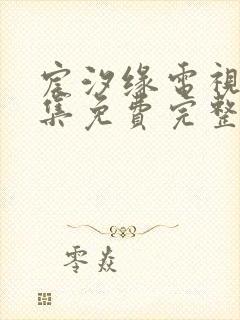 宸汐缘電視
集免費完整
零焱